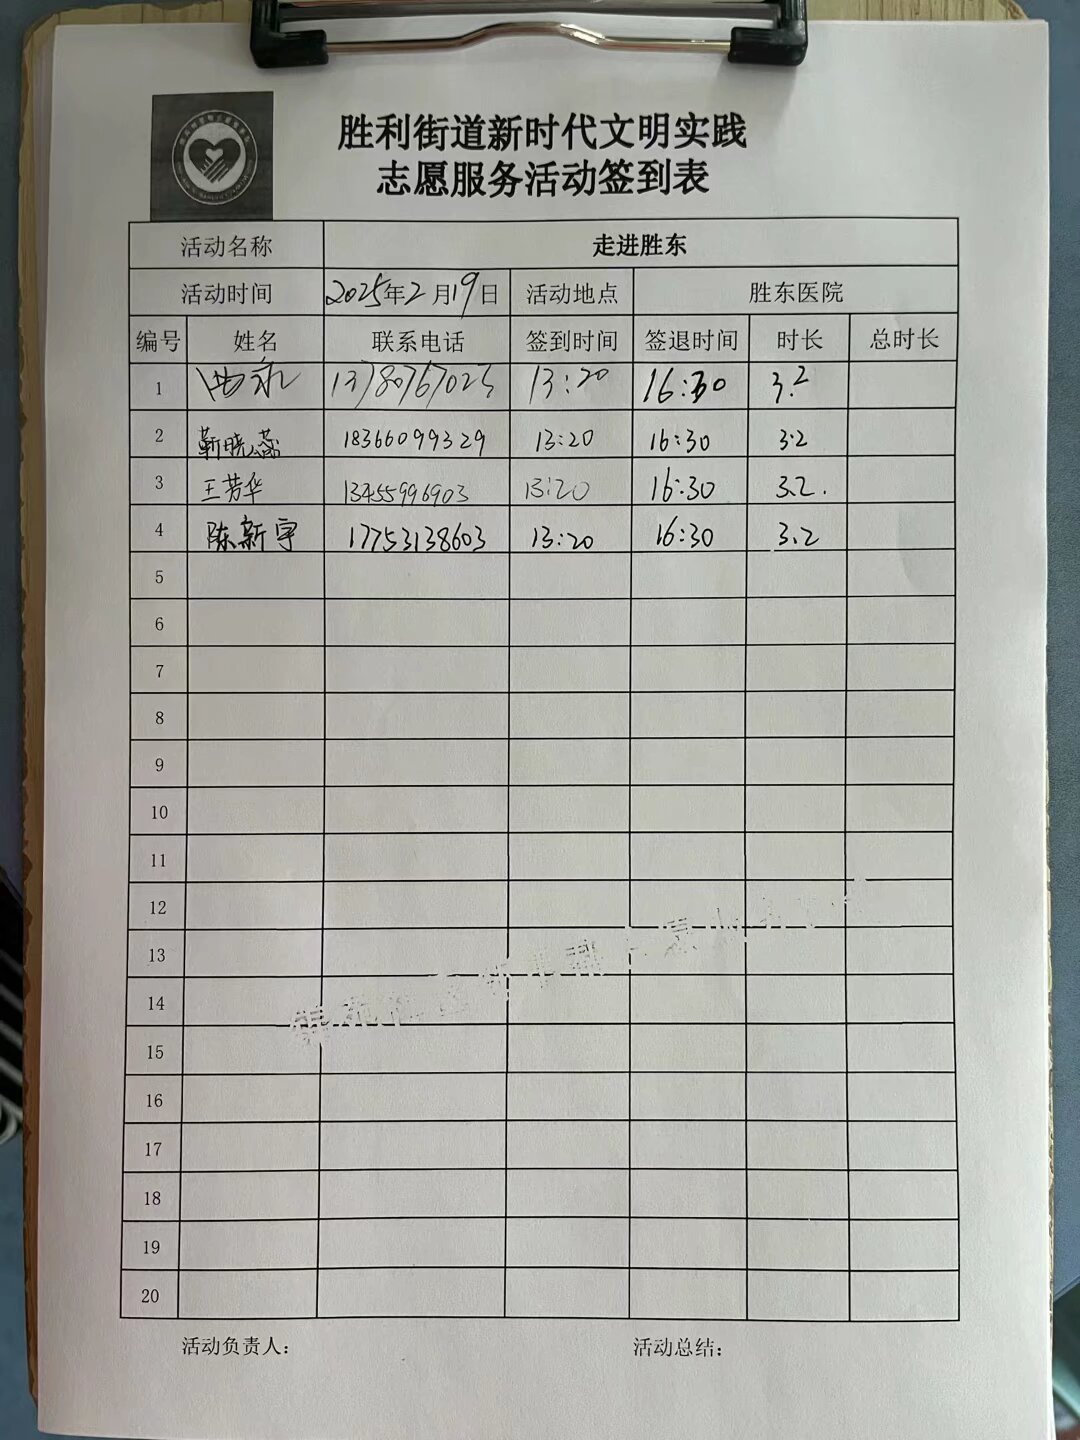 胜利街道新时代文明实践
志愿服务活动签到表
活动名称 走进胜东
活动时间 2025年2月19日 活动地点 胜东医院
编号 姓名 联系电话 签到时间 签退时间 时长 总时长
1 13780767023 13:20 16:30 3.2
2 靳晓蕊 18366099329 13:20 16:30 3.2
3 王芳华 13455996903 13:20 16:30 3.2.
4 陈新宇 17753138603 13:20 16:30 3.2
5
6
7
8
9
10
11
12
13
14
15
16
17
18
19
20
活动负责人: 活动总结: